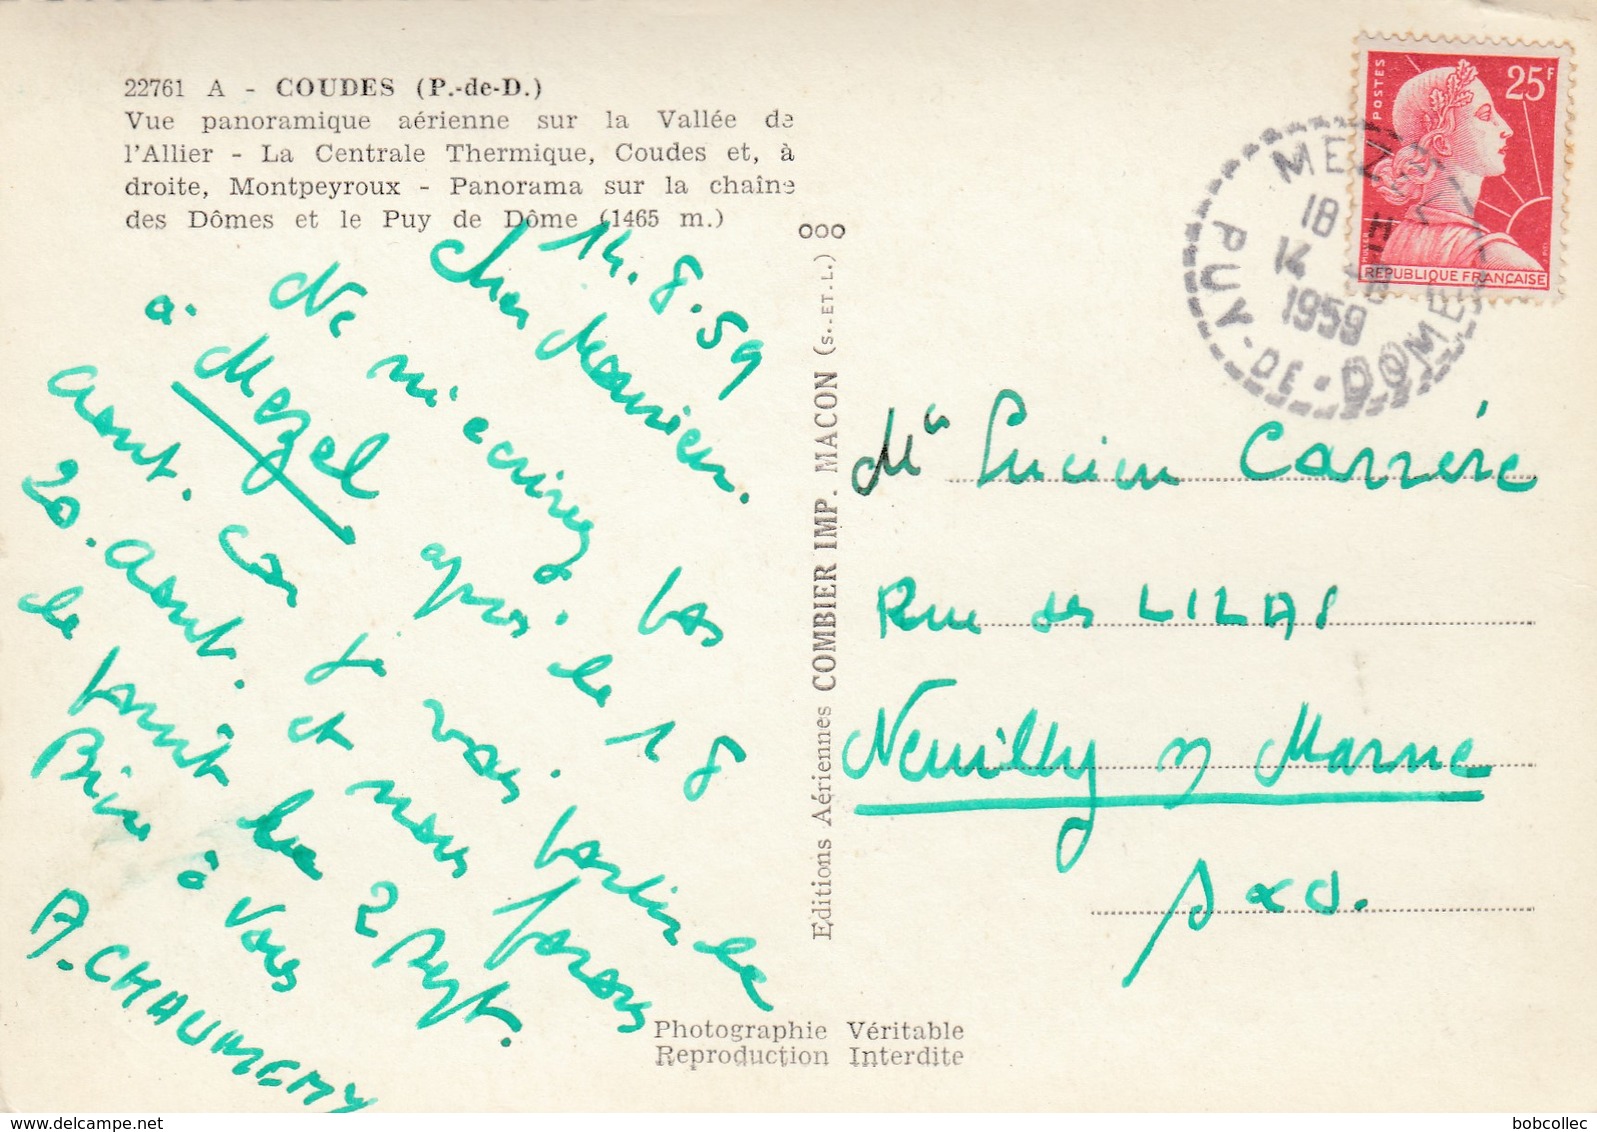 22761 A - COUDES (P.-de-D.)
Vue panoramique aérienne sur la Vallée de
l'Allier - La Centrale Thermique, Coudes et, à
droite, Montpeyroux - Panorama sur la chaîne
des Dômes et le Puy de Dôme (1465 m.)
14.8.59
Cher Monsieur.
Ne m'écrivez pas
à Mezel après le 18
Aout. Car je vais partir le
20. Aout. et nous ferons
le
les 2 Sept.
Bien à vous
A. CHAUMEMY
Editions Aériennes COMBIER IMP. MACON (S.-ET-L.)
ooo
POSTES
25F
REPUBLIQUE FRANÇAISE
MEZEL
18 H
14 -8
1959
PUY-DE-DOME
Mr Lucien Carrère
Rue des LILAS
Neuilly s/ Marne
S &O.
Photographie Véritable
Reproduction Interdite
bobcollec